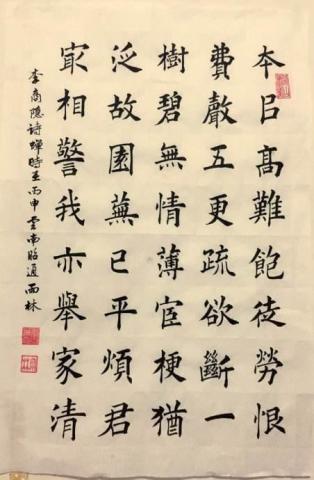 夲㠯高難飽徒勞恨
費聲五更疏欲斷一
樹碧無情薄宦梗猶
泛故園蕪已平煩君
冣相警我亦舉家清
李商隐詩蟬時丙申云南昭通雨林